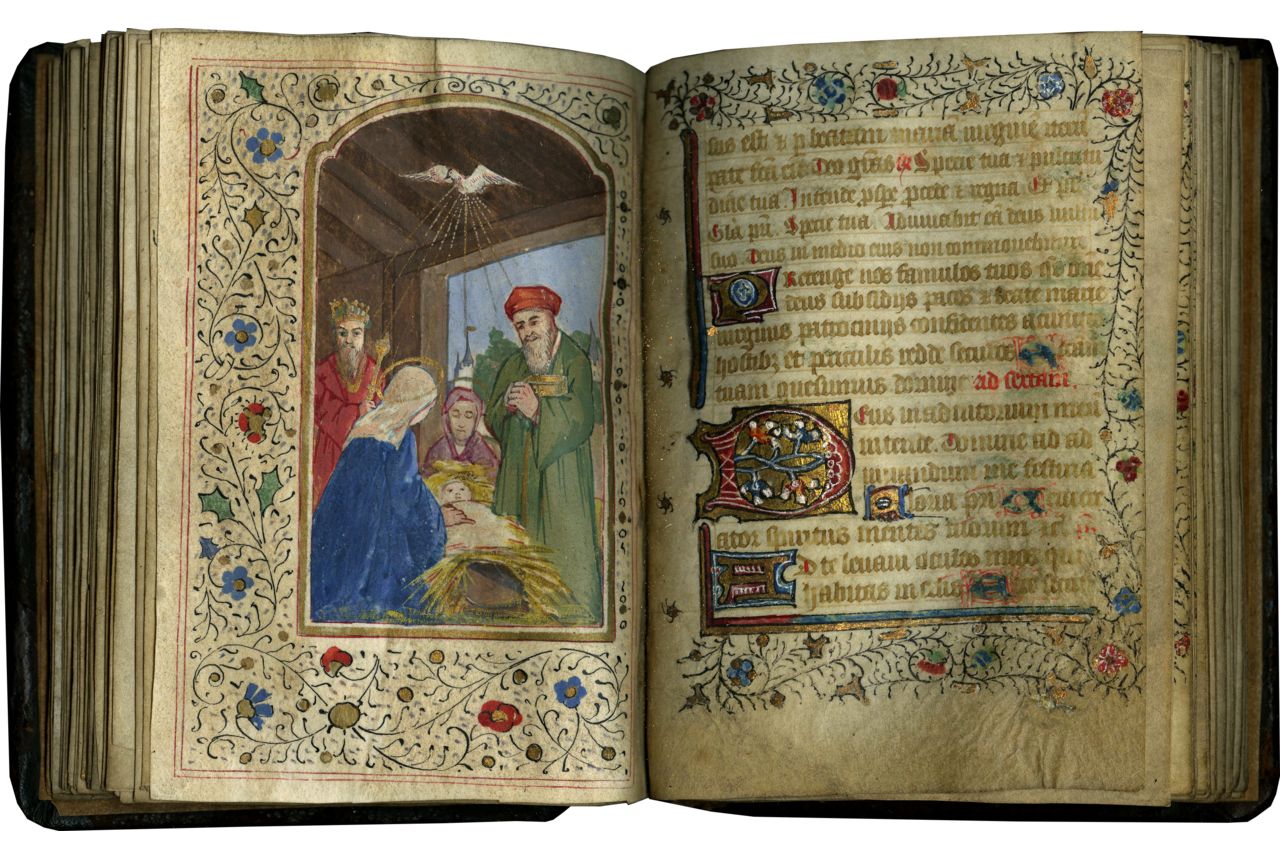 sus est & p beatam mariā virginē
pate fcā est Deo grās Specie tua & pulcritu
dine tua. Intende pspe pcede & regna
Glā pri Specie tua Adiuuabit eā deus uultu
suo Deus in medio eius non commouebitur
Protege nos famulos tuos
deus subsidijs pacis & beate marie
uirginis patrocinijs confidentes a cunctis
hostibz et periculis redde securos
tuam quesumus domine ad sextam.
Deus in adiutorium meu
intende. Domine ad ad
iuuandum me festina
Gloria pri
ator spiritus mentes tuorum
Ad te leuaui oculos meos qui
habitas in celis sicut